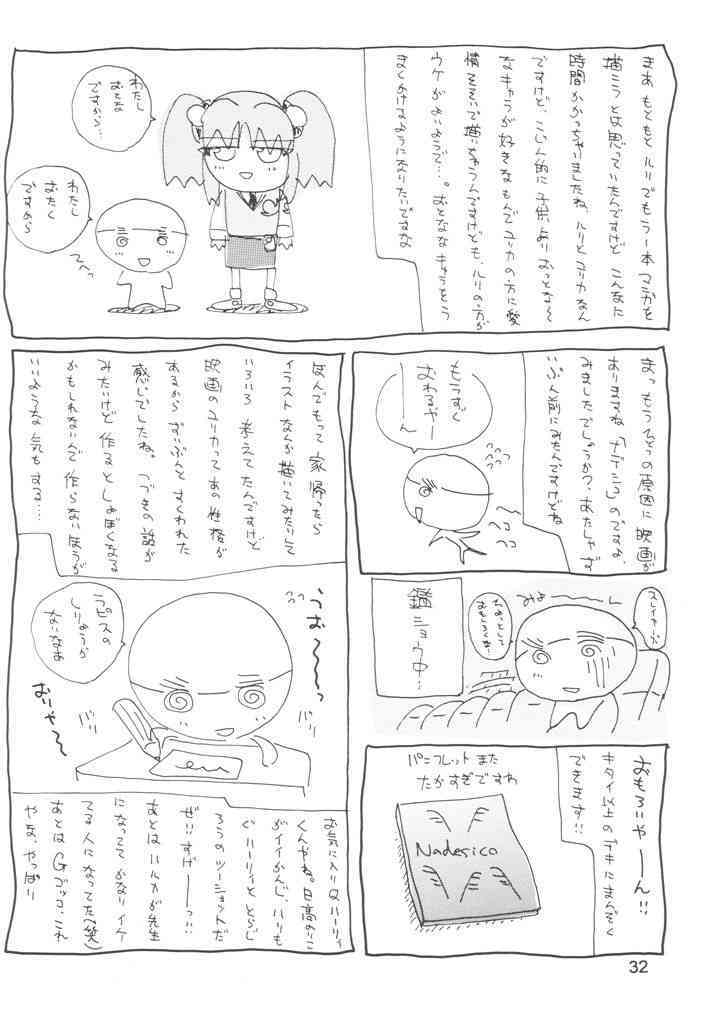 まあ もともと ルリでもう一本 マンガを
描こうとは思っていたんですけど こんなに
時間かかっちゃいましたね、ルリとユリカなん
ですけど、こじん的に 子供 よりおっとな〜
なキャラが 好きなもんで ユリカの方に愛
情そそいで描いちゃうんですけども、ルリの方が
ウケがよいようで…。おとななキャラもう
まくかけるようになりたいですな
わたし
おとな
ですから…
わたし
おたく
ですから
てへっ
まっ もうひとつの原因に 映画が
ありますね「ナデシコ」のですよ、
みましたでしょうか?、あたしゃず
いぶん前にみたんですけどね
もうすぐ
おわるやー
ーん
ヘコ
ヘコ
スレイヤーズ
みょ〜〜〜ん
ちょっとして
おもろくな…
鑑
ショウ中…
おもろいやーーん!!
キタイ以上の デキにまんぞく
できます!!
パンフレット また
たかすぎですわ
Nadesico
ほんでもって 家 帰ったら
イラストなんか 描いてみたりして
いろいろ 考えてたんですけど
映画のユリカってあの性格が
あるから ずいぶんと すくわれた
感じでしたね。つづきの話が
みたいけど 作ると しょぼくなる
かもしれないんで 作らないほうが
いいような気もする…
うお〜〜〜っ
ラピスの
しりょうが
ないなあ
おりゃ〜
バリ
バリ
お気に入りはハーリィ
くんやね。日高のりこ
がイイかんじ、ルリも
ぐハーリィと とらじ
ろうのツーショットだ
ぜ!!すげーーーっ!!
あとは ハルカが先生
になってて かなりイケ
てる人になってた(笑)
あとは Gゲッコ、これ
やね、やっぱり
32